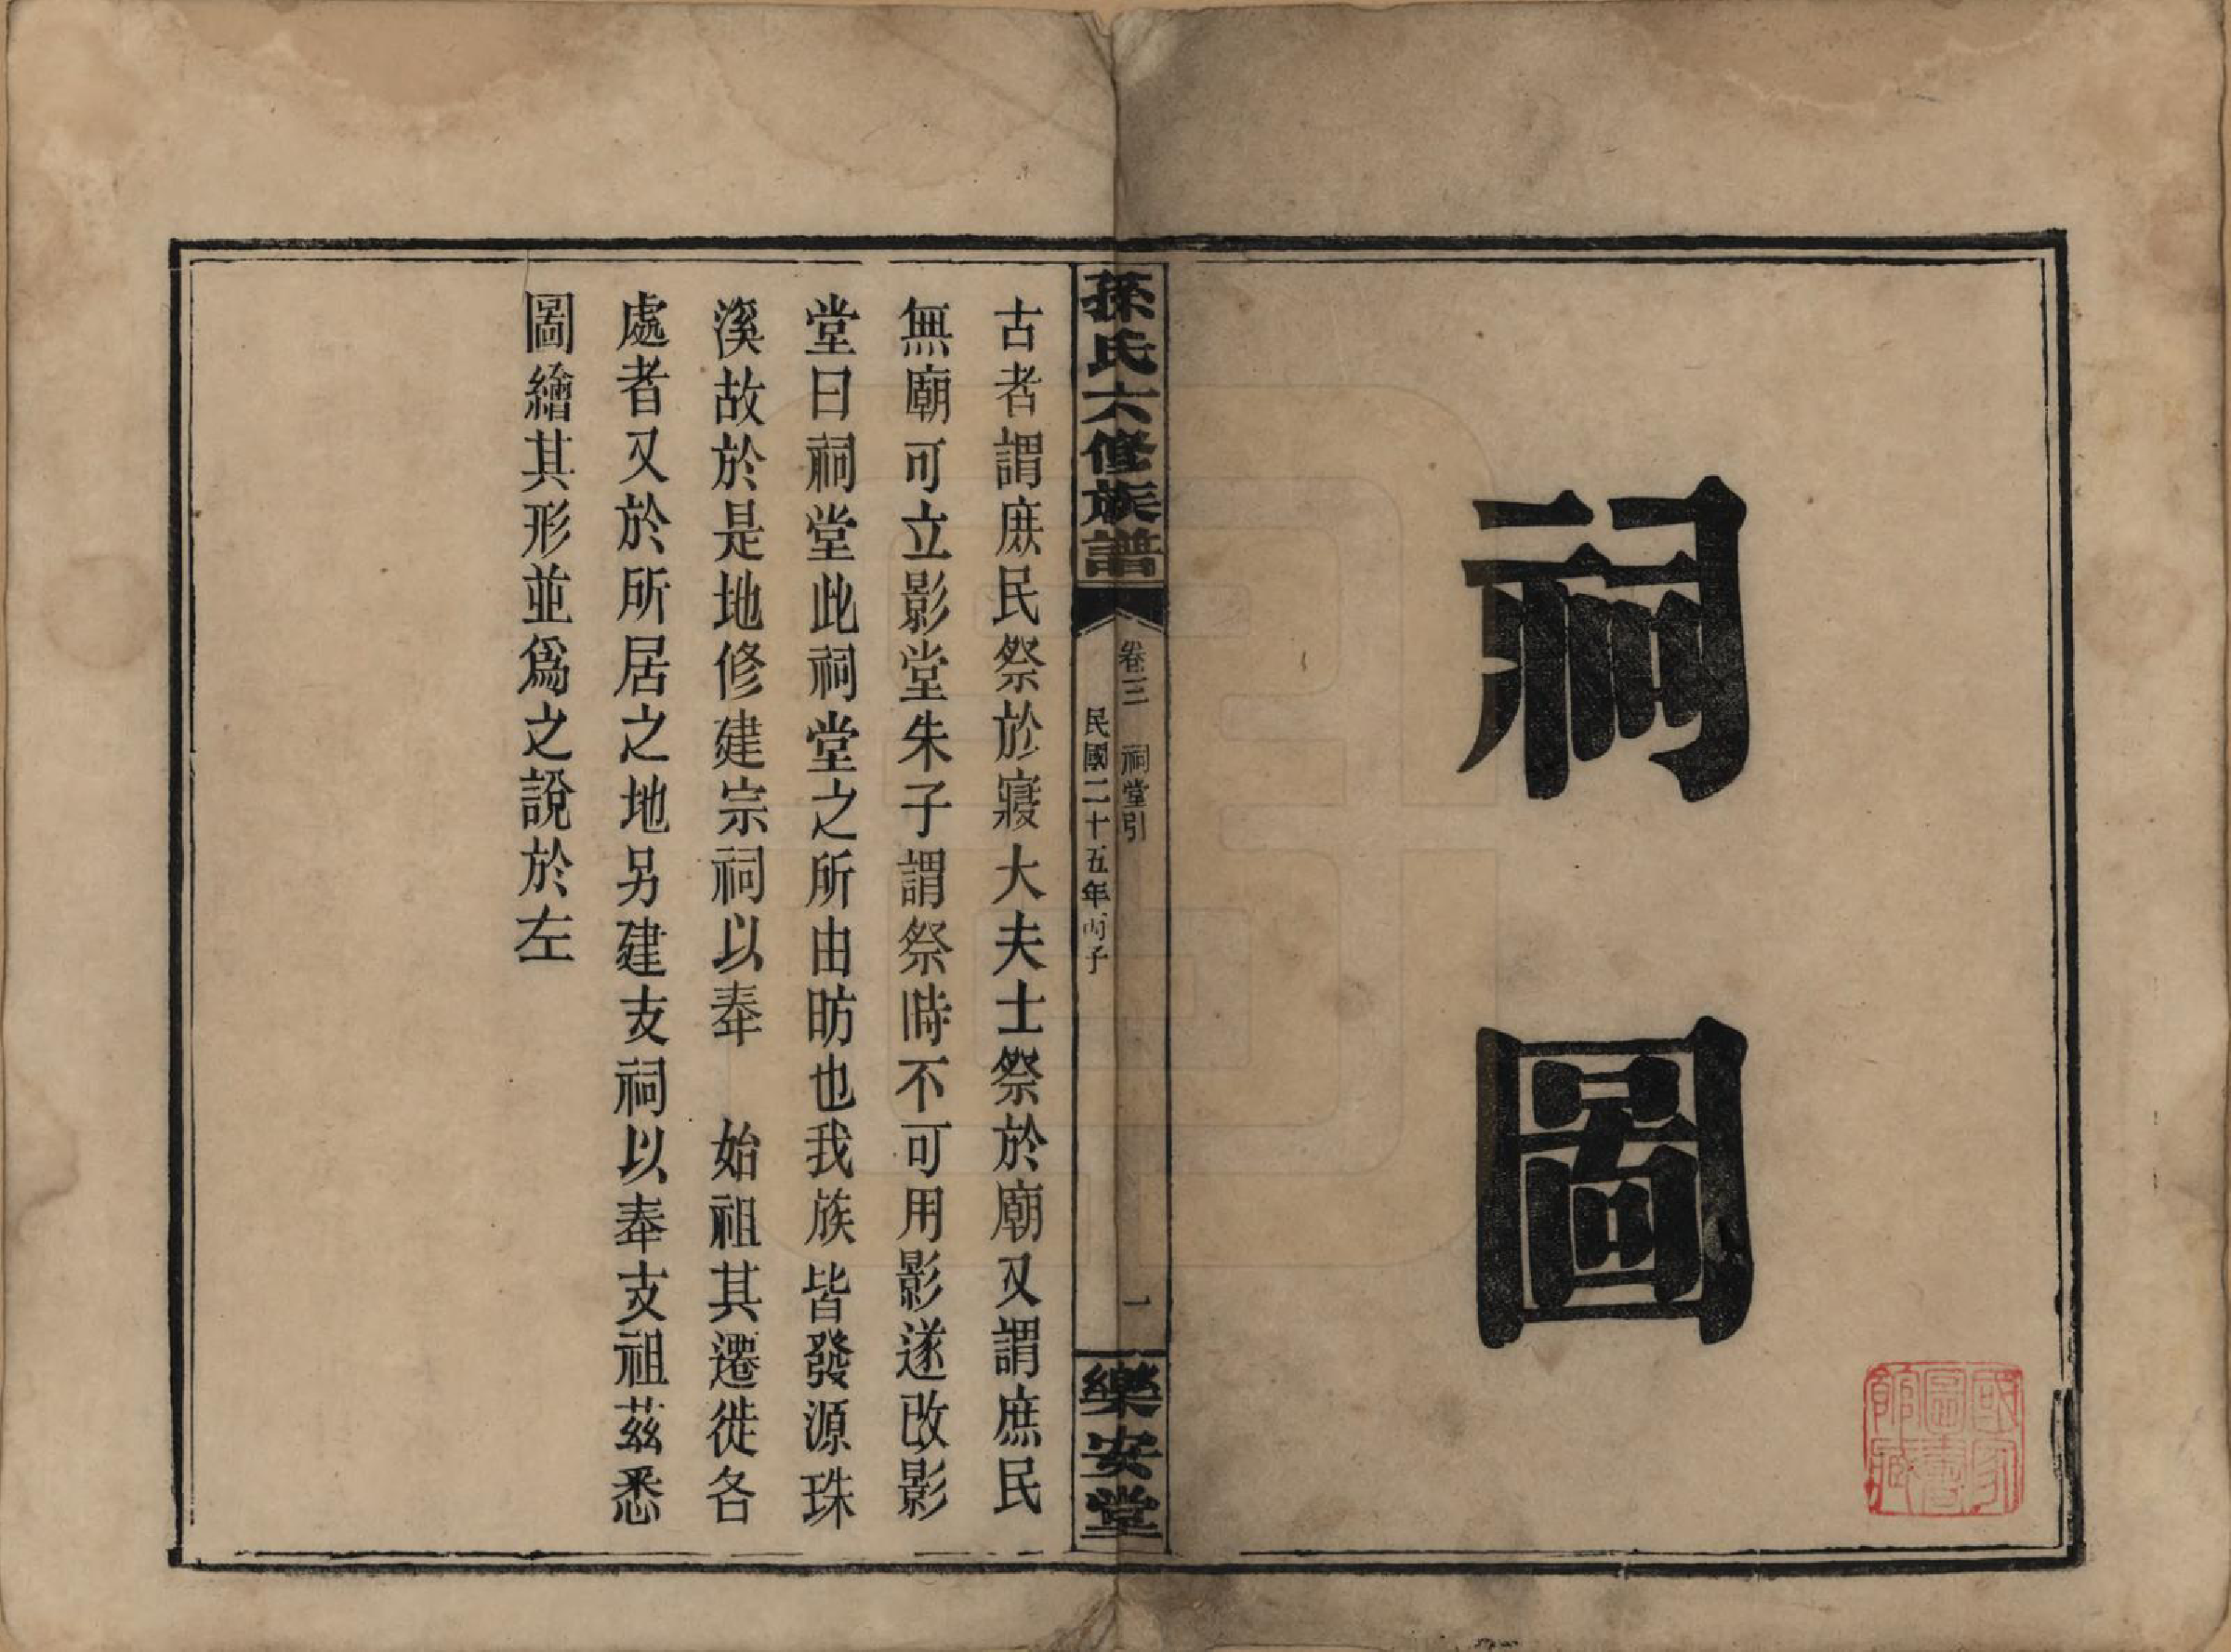 祠圖
國家
圖書
館藏
孫氏六修族譜
卷三 祠堂引
民國二十五年丙子
一
樂安堂
古者謂庶民祭於寢大夫士祭於廟又謂庶民
無廟可立影堂朱子謂祭時不可用影遂改影
堂曰祠堂此祠堂之所由昉也我族皆發源珠
溪故於是地修建宗祠以奉 始祖其遷徙各
處者又於所居之地另建支祠以奉支祖茲悉
圖繪其形並爲之說於左